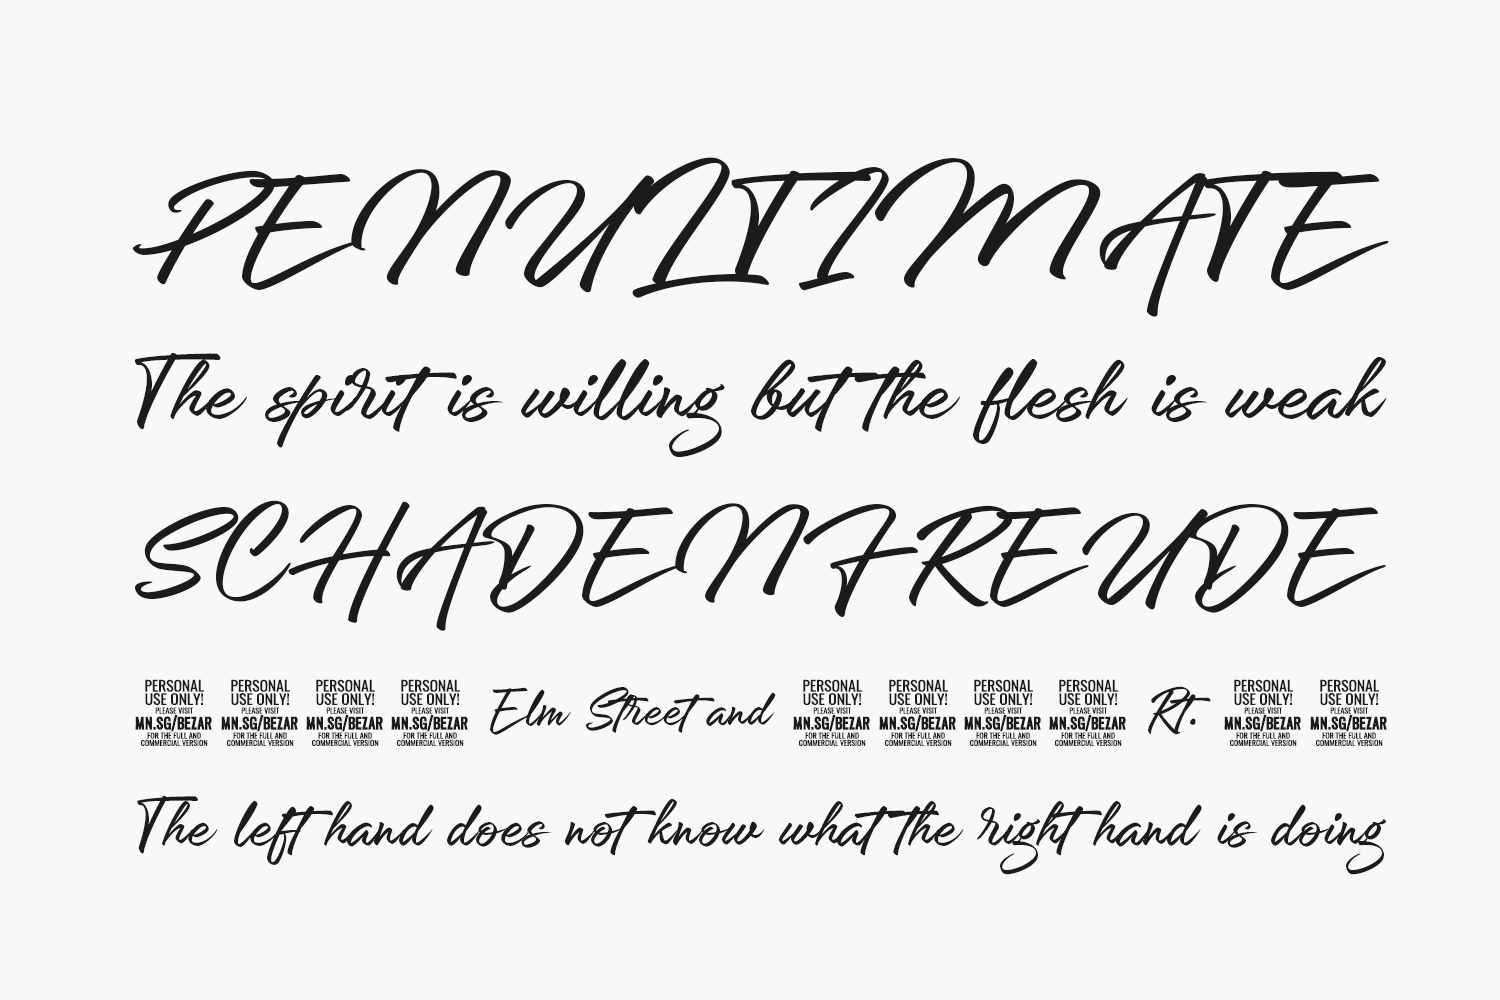 PENULTIMATE
The spirit is willing but the flesh is weak
SCHADENFREUDE
PERSONAL USE ONLY! PLEASE VISIT MN.SG/BEZAR FOR THE FULL AND COMMERCIAL VERSION PERSONAL USE ONLY! PLEASE VISIT MN.SG/BEZAR FOR THE FULL AND COMMERCIAL VERSION PERSONAL USE ONLY! PLEASE VISIT MN.SG/BEZAR FOR THE FULL AND COMMERCIAL VERSION PERSONAL USE ONLY! PLEASE VISIT MN.SG/BEZAR FOR THE FULL AND COMMERCIAL VERSION Elm Street and PERSONAL USE ONLY! PLEASE VISIT MN.SG/BEZAR FOR THE FULL AND COMMERCIAL VERSION PERSONAL USE ONLY! PLEASE VISIT MN.SG/BEZAR FOR THE FULL AND COMMERCIAL VERSION PERSONAL USE ONLY! PLEASE VISIT MN.SG/BEZAR FOR THE FULL AND COMMERCIAL VERSION PERSONAL USE ONLY! PLEASE VISIT MN.SG/BEZAR FOR THE FULL AND COMMERCIAL VERSION Rt. PERSONAL USE ONLY! PLEASE VISIT MN.SG/BEZAR FOR THE FULL AND COMMERCIAL VERSION PERSONAL USE ONLY! PLEASE VISIT MN.SG/BEZAR FOR THE FULL AND COMMERCIAL VERSION
The left hand does not know what the right hand is doing